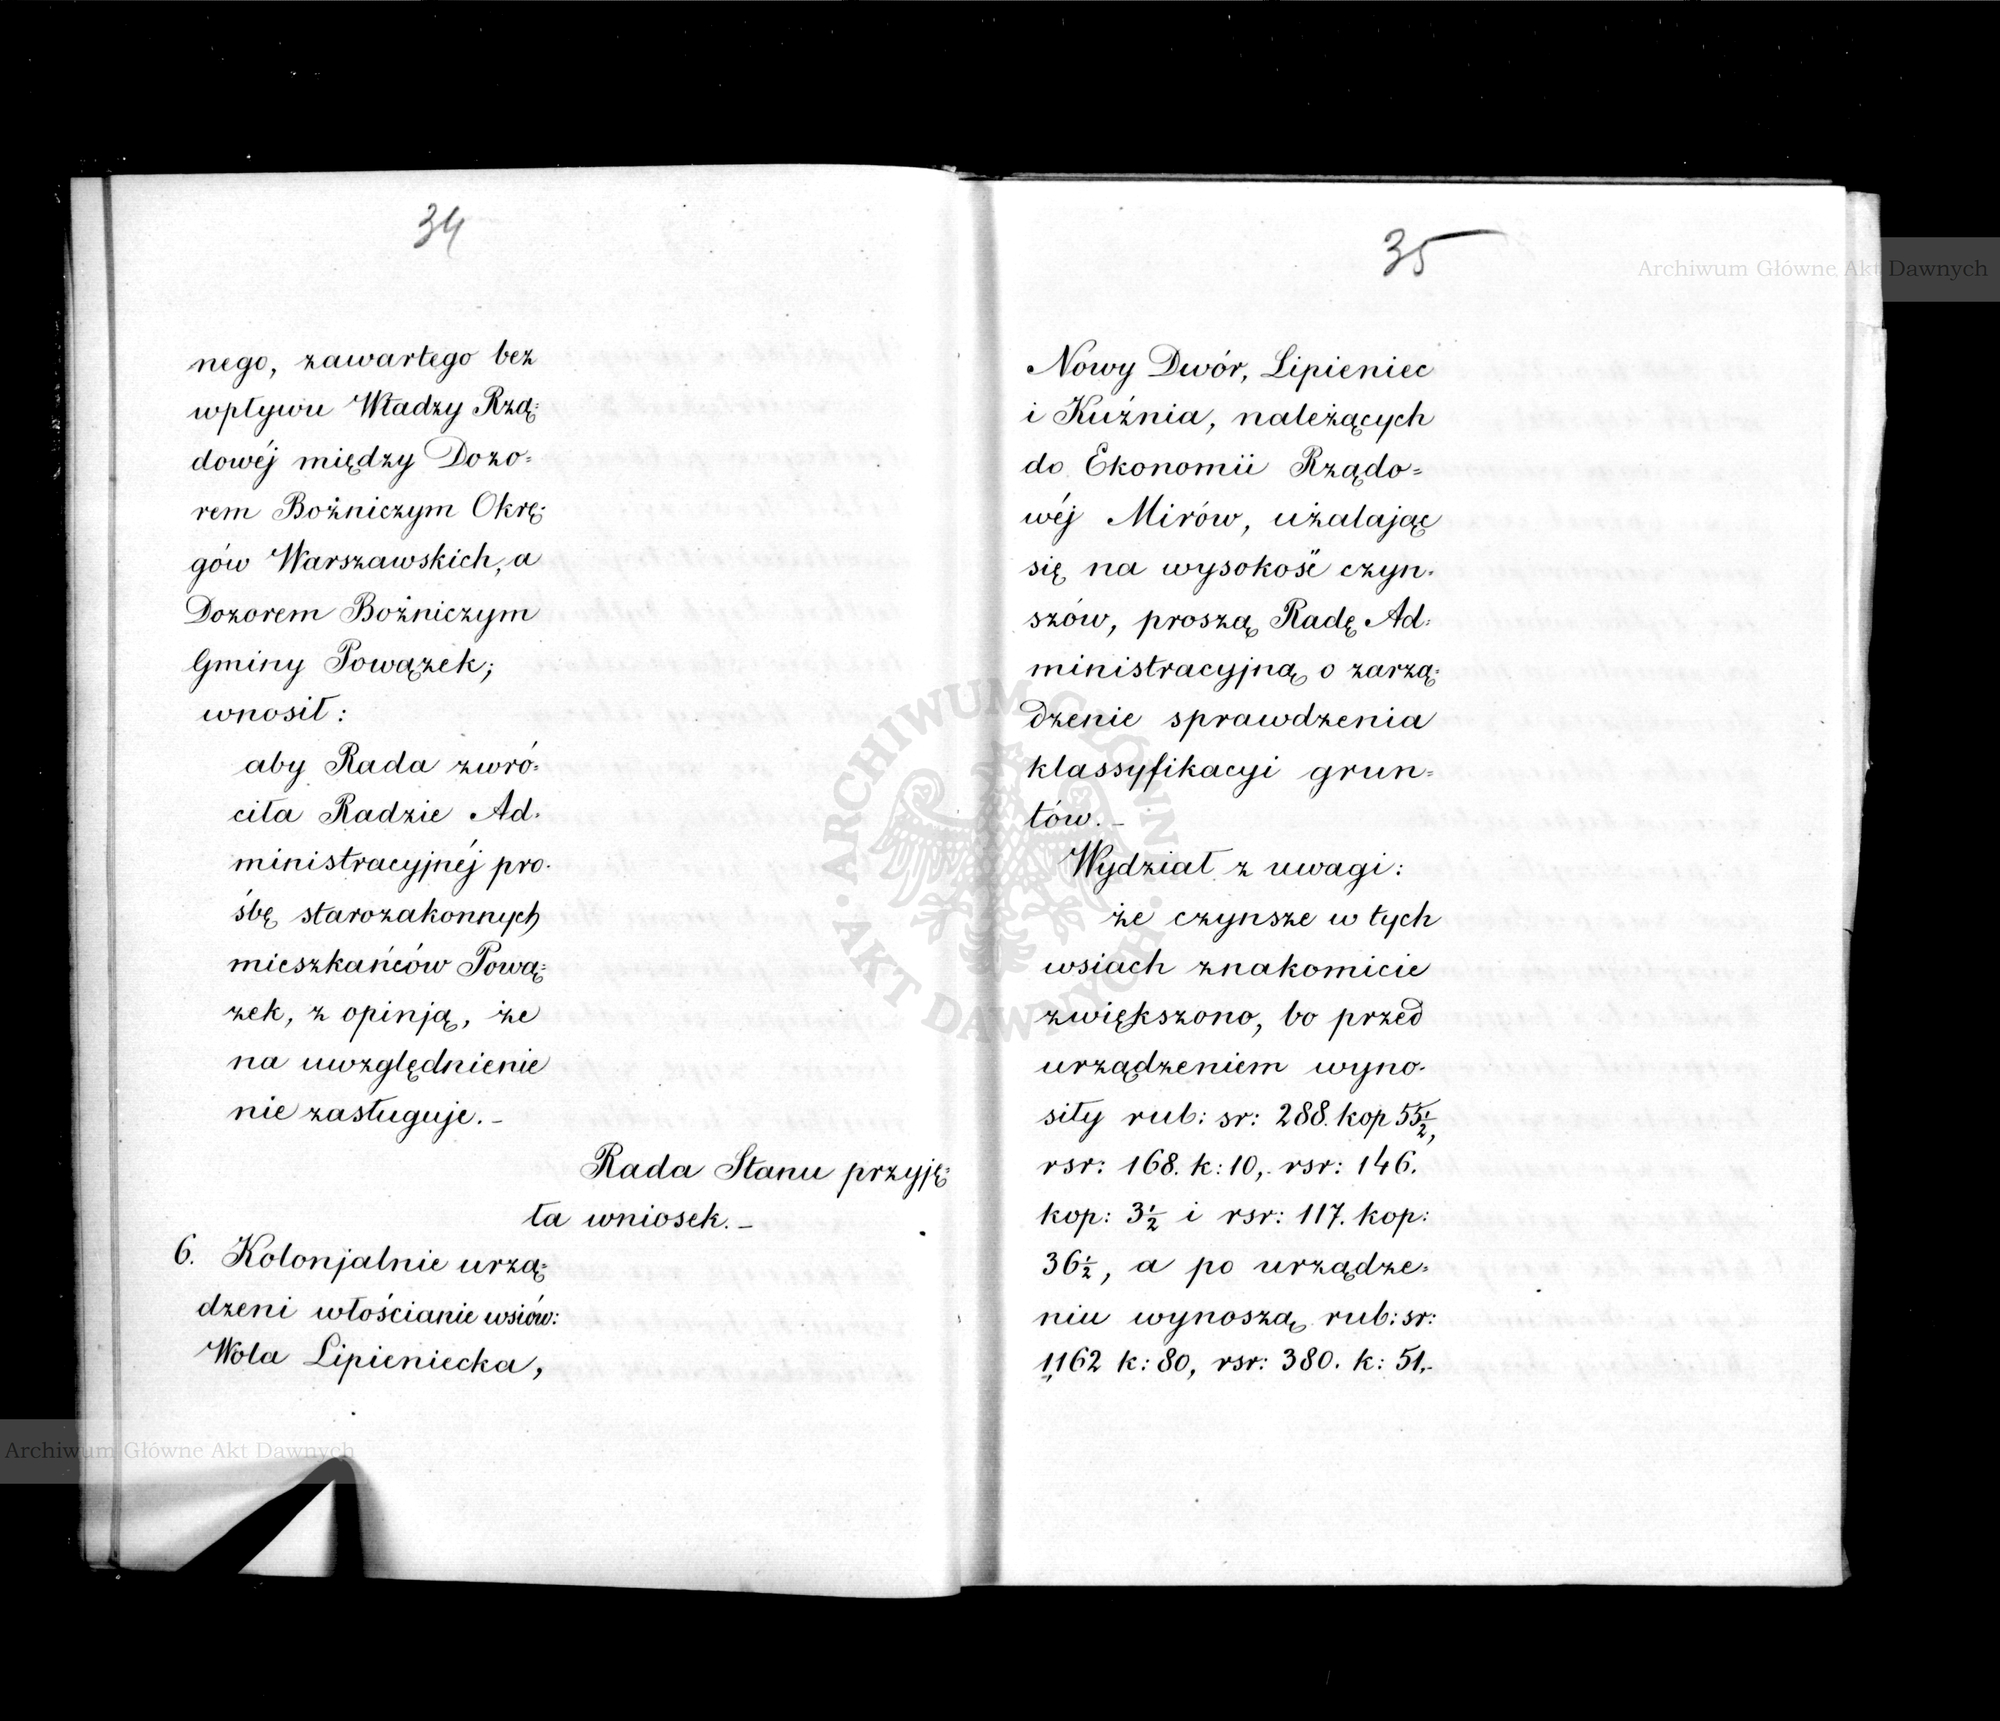 34
nego, zawartego bez
wpływu Władzy Rzą=
dowéj między Dozo=
rem Bożniczym Okrę=
gów Warszawskich, a
Dozorem Bożniczym
Gminy Powązek;
wnosił:
aby Rada zwró=
ciła Radzie Ad=
ministracyjnéj pro=
śbę starozakonnych
mieszkańców Pową=
zek, z opinją, że
na uwzględnienie
nie zasługuje. –
Rada Stanu przyję=
ła wniosek. –
6. Kolonjalnie urzą=
dzeni włościanie wsiów:
Wola Lipieniecka,
35
Nowy Dwór, Lipieniec
i Kuźnia, należących
do Ekonomii Rządo=
wéj Mirów, użalając
się na wysokość czyn=
szów, proszą Radę Ad=
ministracyjną o zarzą=
dzenie sprawdzenia
klassyfikacyi grun=
tów. –
Wydział z uwagi:
że czynsze w tych
wsiach znakomicie
zwiększono, bo przed
urządzeniem wyno=
siły rub: sr: 288. kop 55½,
rsr: 168. k: 10, rsr: 146.
kop: 3½ i rsr: 117. kop:
36½, a po urządze=
niu wynoszą rub: sr:
1,162 k: 80, rsr: 380. k: 51,
Archiwum Główne Akt Dawnych
Archiwum Główne Akt Dawnych
· ARCHIWUM GŁÓWNE · AKT DAWNYCH